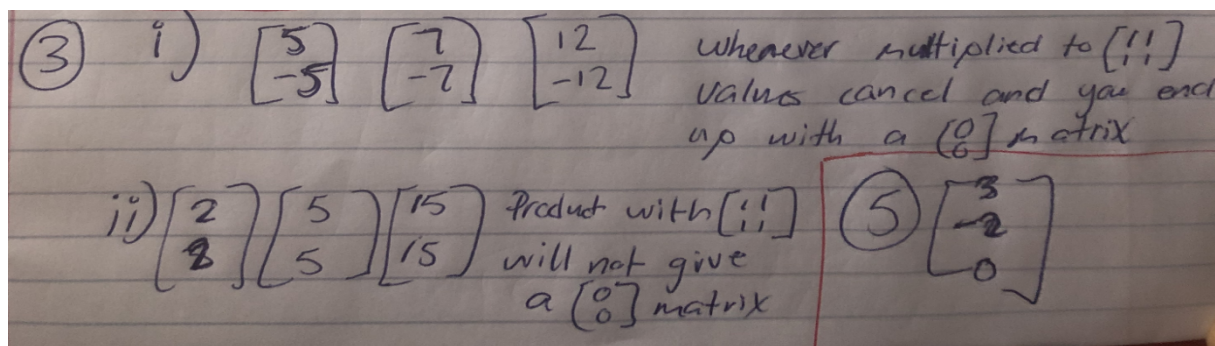 ③ i) [5 -5] [7 -7] [12 -12] whenever multiplied to [1 1 1 1]
values cancel and you end
up with a [0 0] matrix
ii) [2 2] [5 5] [15 15] Product with [1 1 1 1]
will not give
a [0 0] matrix
⑤ [3 -2 0]